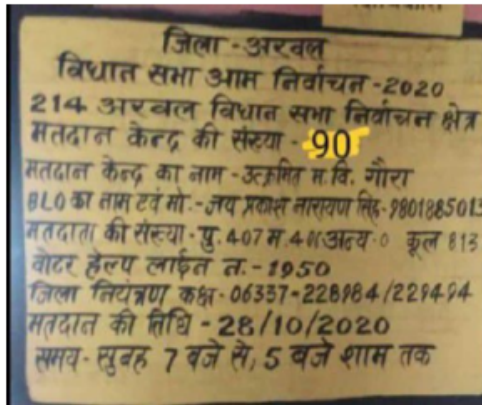 जिला - अरवल
विधान सभा आम निर्वाचन - 2020
214 अरवल विधान सभा निर्वाचन क्षेत्र
मतदान केन्द्र की संख्या - 90
मतदान केन्द्र का नाम - उत्क्रमित म.वि. गौरा
BLO का नाम एवं मो. - जय प्रकाश नारायण सिंह - 9801885013
मतदाता की संख्या - पु. 407 म. अन्य - 0 कूल 813
वोटर हेल्प लाईन न. - 1950
जिला नियंत्रण कक्ष - 06337-228984/229494
मतदान की तिथि - 28/10/2020
समय - सुबह 7 बजे से, 5 बजे शाम तक